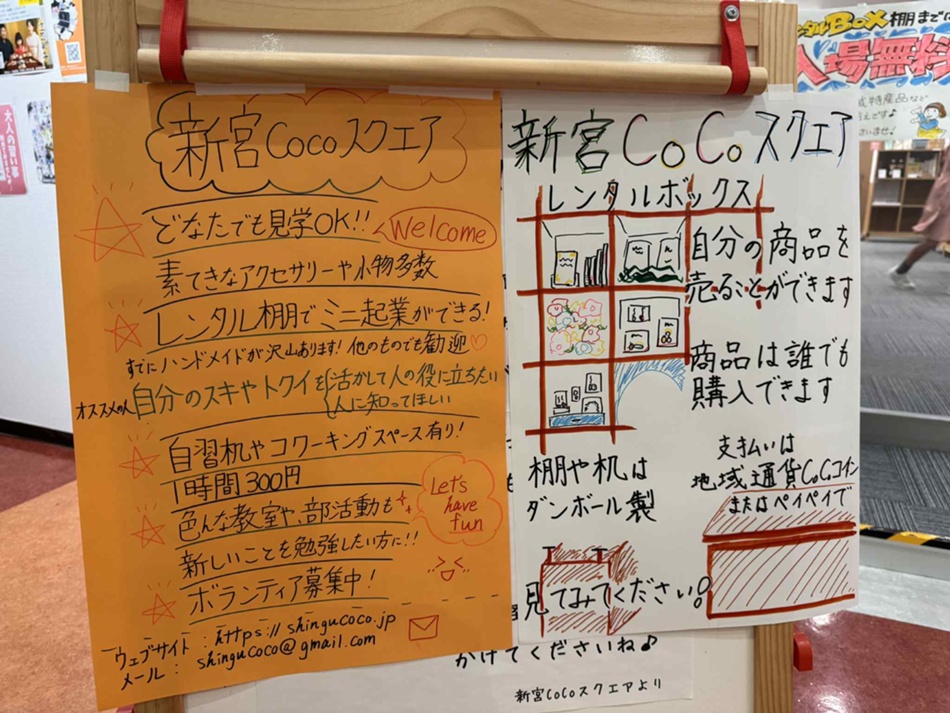 新宮Cocoスクエア
どなたでも見学OK!!
Welcome
素てきなアクセサリーや小物多数
レンタル棚でミニ起業ができる!
すでにハンドメイドが沢山あります! 他のものでも歓迎♡
オススメの人 自分のスキやトクイを
活かして人の役に立ちたい
人に知ってほしい
自習机やコワーキングスペース有り!
1時間300円
色んな教室や、部活動も
Let's
have
fun
新しいことを勉強したい方に!!
ボランティア募集中!
ウェブサイト : https://shingucoco.jp
メール : shingucoco@gmail.com
新宮CoCoスクエア
レンタルボックス
自分の商品を
売ることができます
商品は誰でも
購入できます
支払いは
地域通貨CoCoコイン
またはペイペイで
棚や机は
ダンボール製
見てみてください!
かけてくださいね♪
新宮CoCoスクエアより
タルBOX棚まで
入場無料
大人の習い事